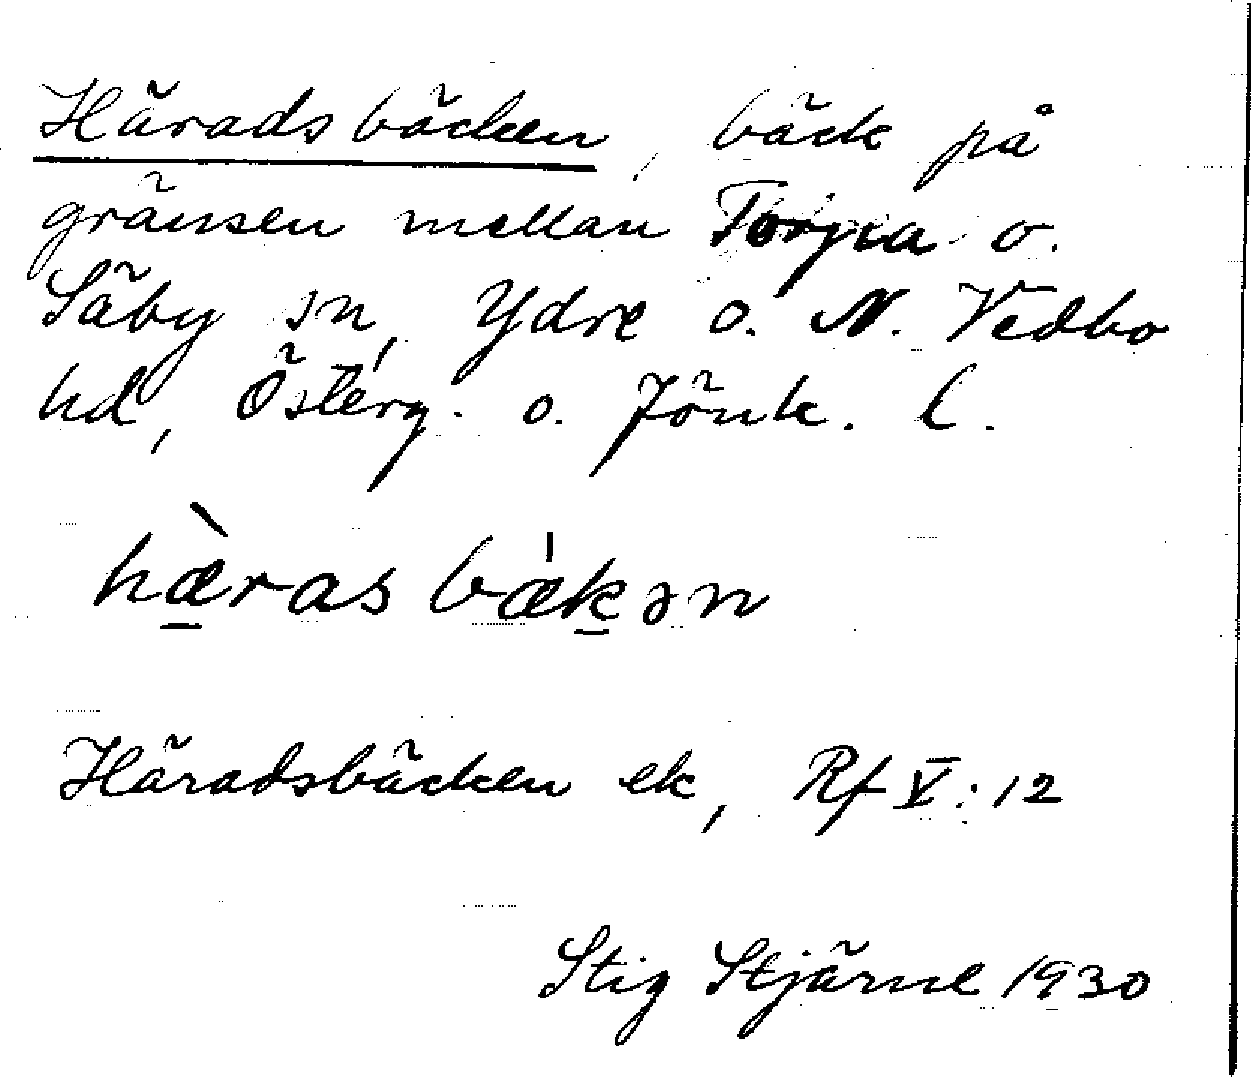 Häradsbäcken, bäck på
gränsen mellan Torpa o.
Säby sn, Ydre o. N. Vedbo
hd, Österg. o. Jönk. l.
hæ̀ras bæ̍kən
Häradsbäcken ek, Rf V:12
Stig Stjärne 1930